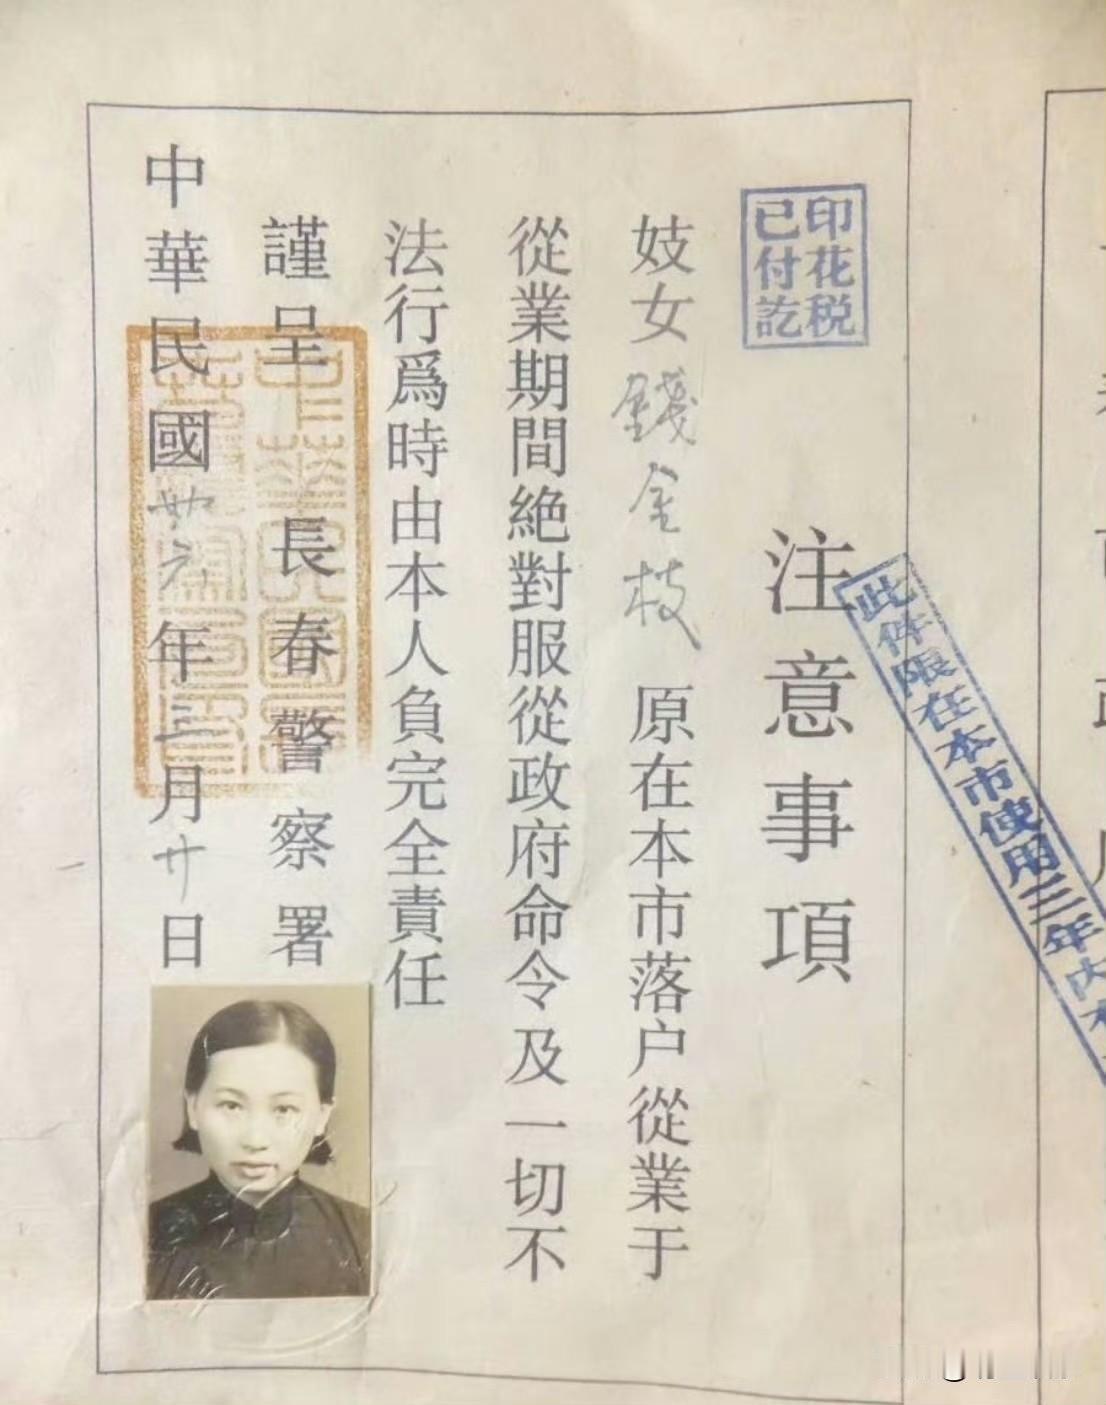 印花税
已付訖
注意事項
妓女錢金枝原在本市落户從業于
從業期間絶對服從政府命令及一切不
法行爲時由本人負完全責任
謹呈長春警察署
中華民國卅六年三月廿日
此件限在本市使用三年内有